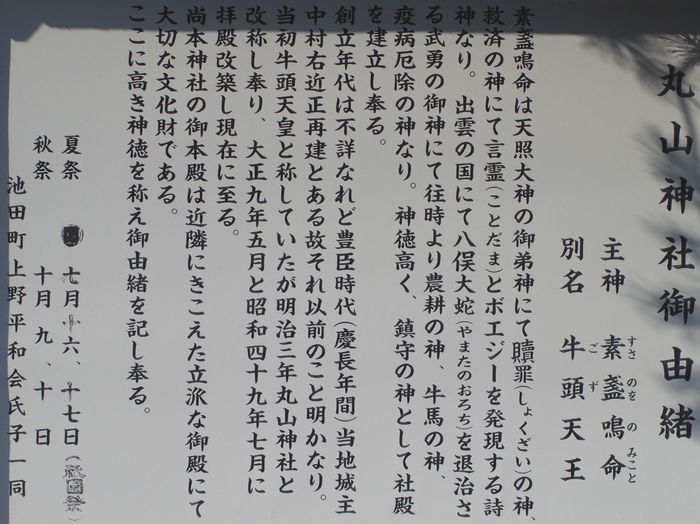 丸山神社御由緒
主神 素盞鳴命
すさのをのみこと
別名 牛頭天王
ごず
素盞鳴命は天照大神の御弟神にて贖罪(しょくざい)の神、
救済の神にて言霊(ことだま)とポエジーを発現する詩
神なり。出雲の国にて八俣大蛇(やまたのおろち)を退治さ
る武勇の御神にて往時より農耕の神、牛馬の神、
疫病厄除の神なり。神徳高く、鎮守の神として社殿
を建立し奉る。
創立年代は不詳なれど豊臣時代(慶長年間)当地城主
中村右近正再建とある故それ以前のこと明かなり。
当初牛頭天皇と称していたが明治三年丸山神社と
改称し奉り、大正九年五月と昭和四十九年七月に
拝殿改築し現在に至る。
尚本神社の御本殿は近隣にきこえた立派な御殿にて
大切な文化財である。
ここに高き神徳を称え御由緒を記し奉る。
夏祭 七月十六、十七日(祇園祭)
秋祭 十月九、十日
池田町上野平和会氏子一同